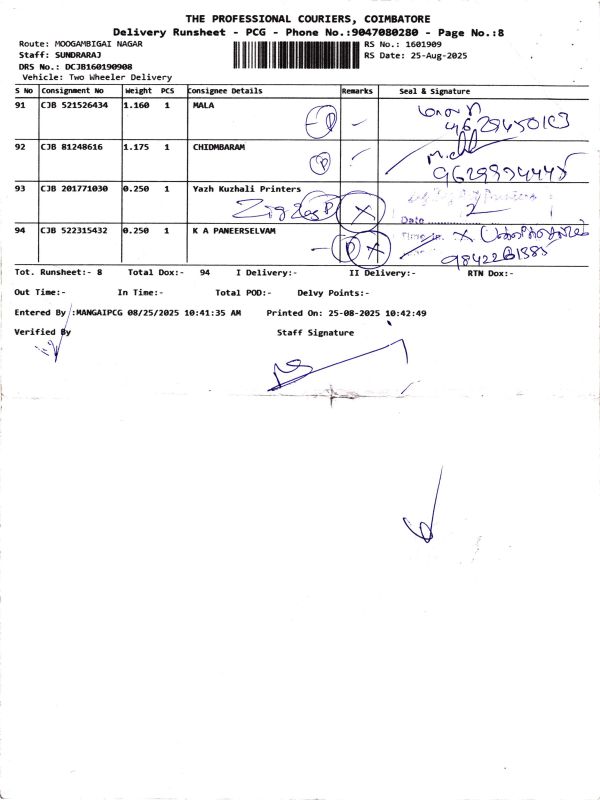 THE PROFESSIONAL COURIERS, COIMBATORE
Delivery Runsheet - PCG - Phone No.:9047080280 - Page No.:8
Route: MOOGAMBIGAI NAGAR
RS No.: 1601909
Staff: SUNDRARAJ
RS Date: 25-Aug-2025
DRS No.: DCJB160190908
Vehicle: Two Wheeler Delivery
S No Consignment No Weight PCS Consignee Details Remarks Seal & Signature
91 CJB 521526434 1.160 1 MALA
P
92 CJB 81248616 1.175 1 CHIDMBARAM
P
93 CJB 201771030 0.250 1 Yazh Kuzhali Printers
P X 2
Date
94 CJB 522315432 0.250 1 K A PANEERSELVAM
P X X
Tot. Runsheet:- 8 Total Dox:- 94 I Delivery:- II Delivery:- RTN Dox:-
Out Time:- In Time:- Total POD:- Delvy Points:-
Entered By :MANGAIPCG 08/25/2025 10:41:35 AM Printed On: 25-08-2025 10:42:49
Verified By Staff Signature